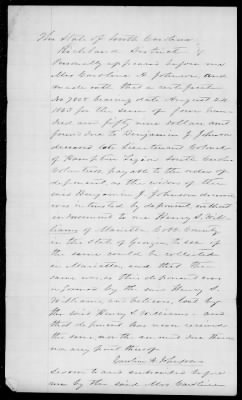 The State of South Carolina
Richland District
Personally appeared before me
Mrs Caroline A Johnson and
made oath that a certificate
No 7005 bearing date August 24
1863 for the sum of four hun-
dred and fifty nine dollars and
due to Benjamin J Johnson
deceased late Lieutenant Colonel
of Hampton Legion South Carolina
Volunteers payable to the order of
deponent as the widow of the
said Benjamin J Johnson deceased
was intrusted by deponent without
indorsement to one Henry S Wil-
liams of Marietta Cobb County
in the State of Georgia to see if
the same could be collected
in Marietta and that the
same was, as this deponent was
informed by the said Henry S.
Williams and believes, lost by
the said Henry S Williams - and
that deponent has never received
the same nor the amount due thereon
nor any part thereof
Caroline A. Johnson
Sworn to and subscribed before
me by the said Mrs Caroline